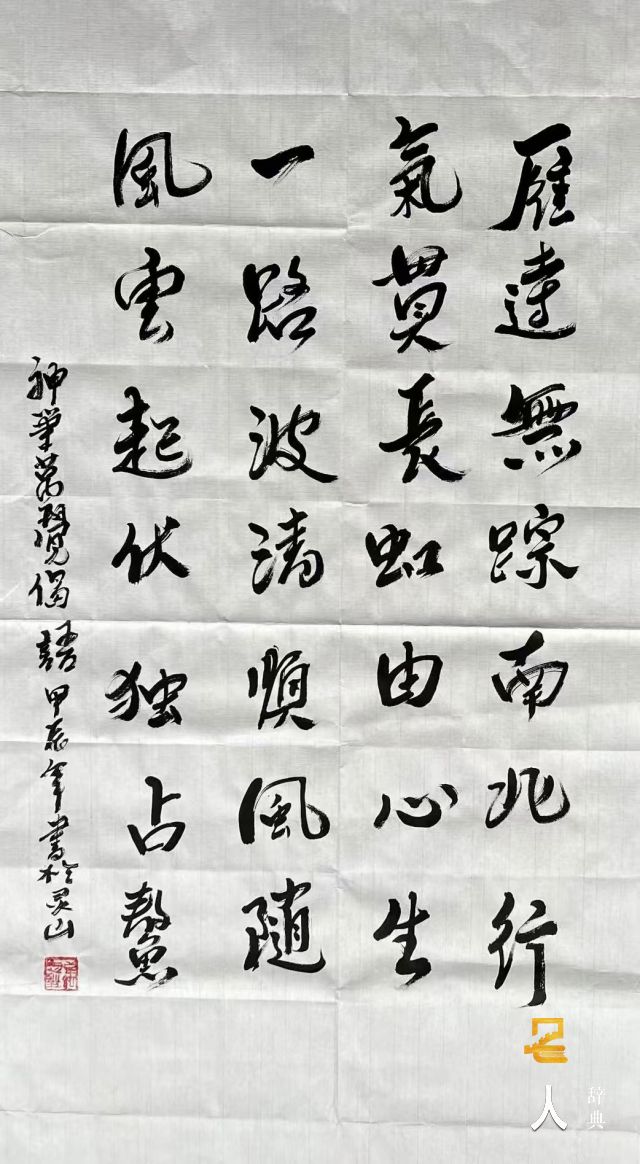 雁達無踪南北行
氣貫長虹由心生
一路波清順風随
風雲起伏独占鰲
神筆萬覺偈語甲辰年書於灵山
名人
辞典